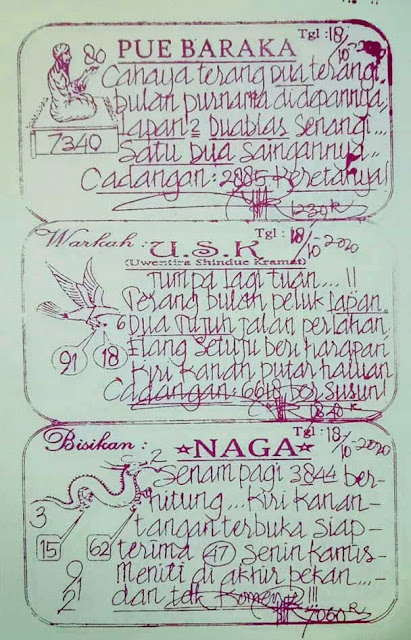 PUE BARAKA
Tgl : 18/10-2020
80
7340
Cahaya terang Dua terangi
bulan purnama didepannya
lapan 2 Duablas senangi...
Satu Dua saingannya...
Cadangan : 2885 Keretanya!
1230 R
Warkah : U.S.K
(Uwentira Shindue Kramat)
Tgl : 18/10-2020
Tumpa lagi tuan...!!
Terang bulan peluk lapan
Dua Tujuh jalan perlahan
Elang setuju beri harapan
Kiri kanan putar haluan
Cadangan : 6618 bersusun!
6
91
18
1840 R
Bisikan : NAGA
Tgl : 18/10-2020
2
Senam pagi 3844 ber-
hitung... Kiri Kanan-
tangan terbuka siap-
terima 47 Senin kamis-
meniti di akhir pekan...-
dan tak Komentar!!!
3
15
62
9
21
7060 R